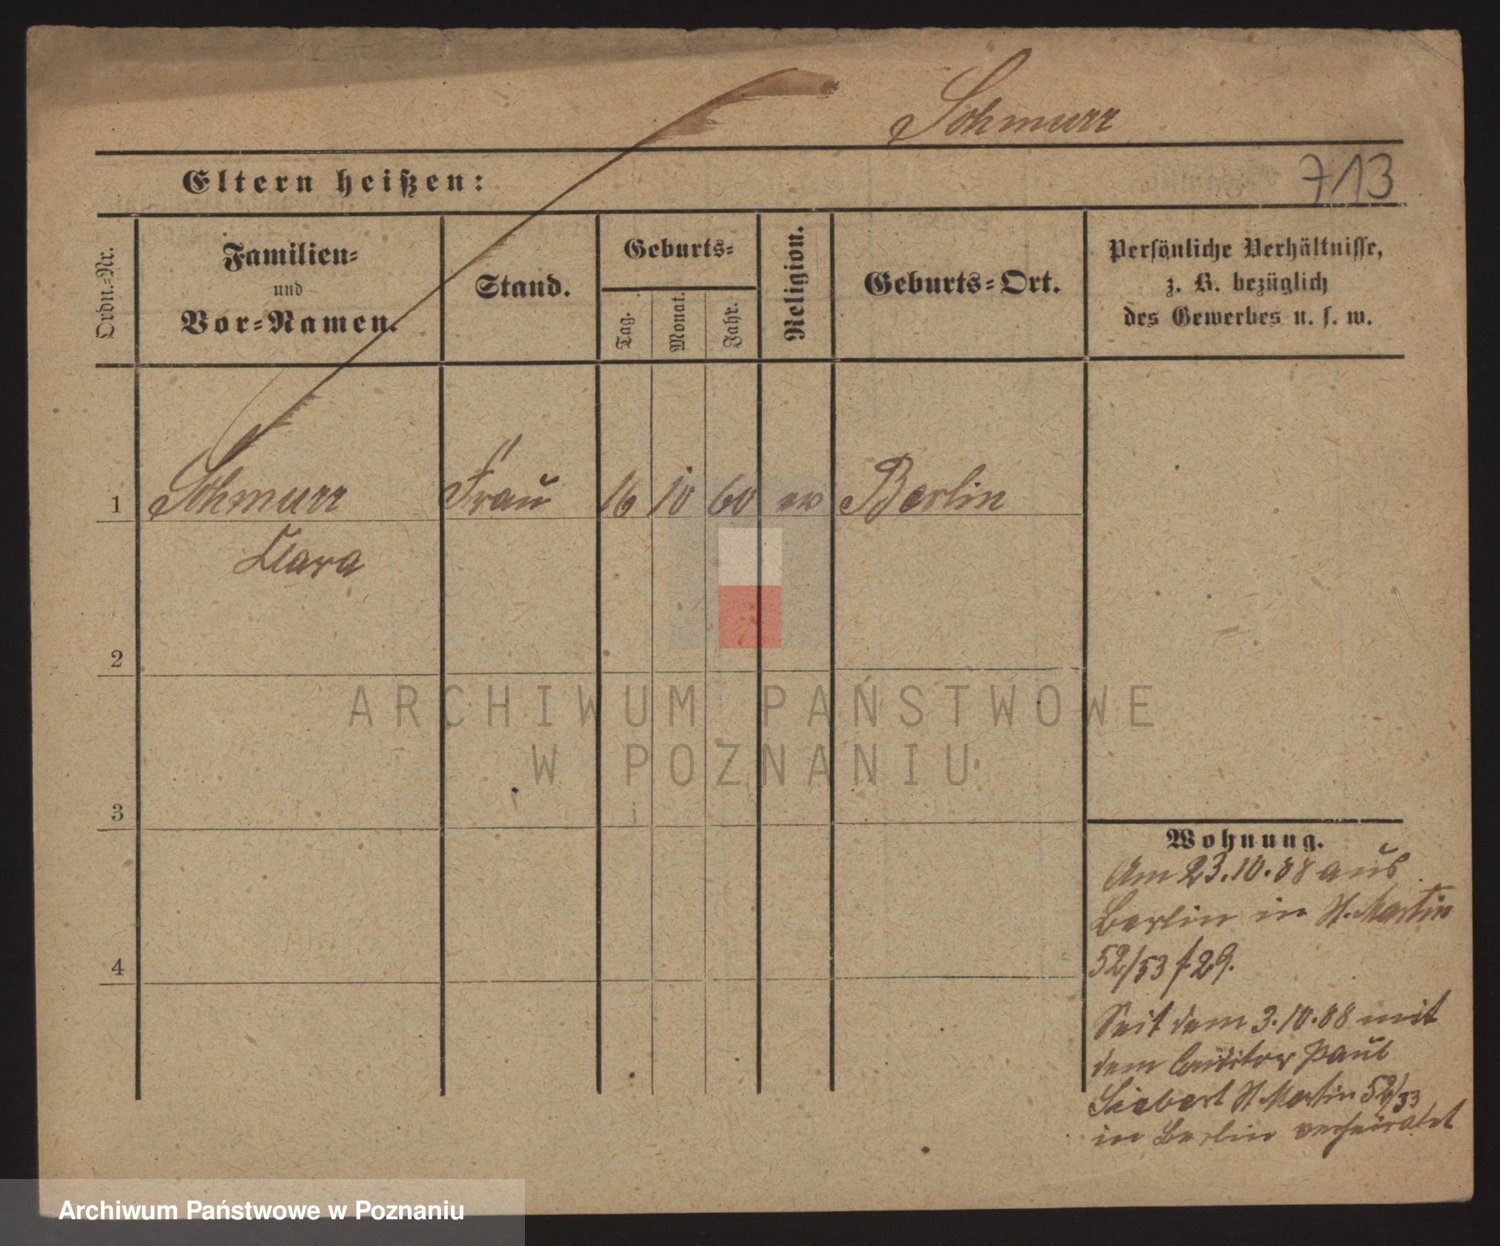 Schmurr
Eltern heißen:
713
Ordn.-Nr.
Familien-
und
Vor-Namen.
Stand.
Geburts-
Tag.
Monat.
Jahr.
Religion.
Geburts-Ort.
Persönliche Verhältnisse,
z. B. bezüglich
des Gewerbes u. s. w.
1 Schmurr Frau 16 10 60 ev Berlin
Clara
2
3
4
Wohnung.
Am 23.10.88 aus
Berlin in St. Martin
52/53 f. 29.
Seit dem 3.10.88 mit
dem Paul
Siebert St. Martin 52/53
in Berlin verheiratet
ARCHIWUM PAŃSTWOWE
W POZNANIU
Archiwum Państwowe w Poznaniu